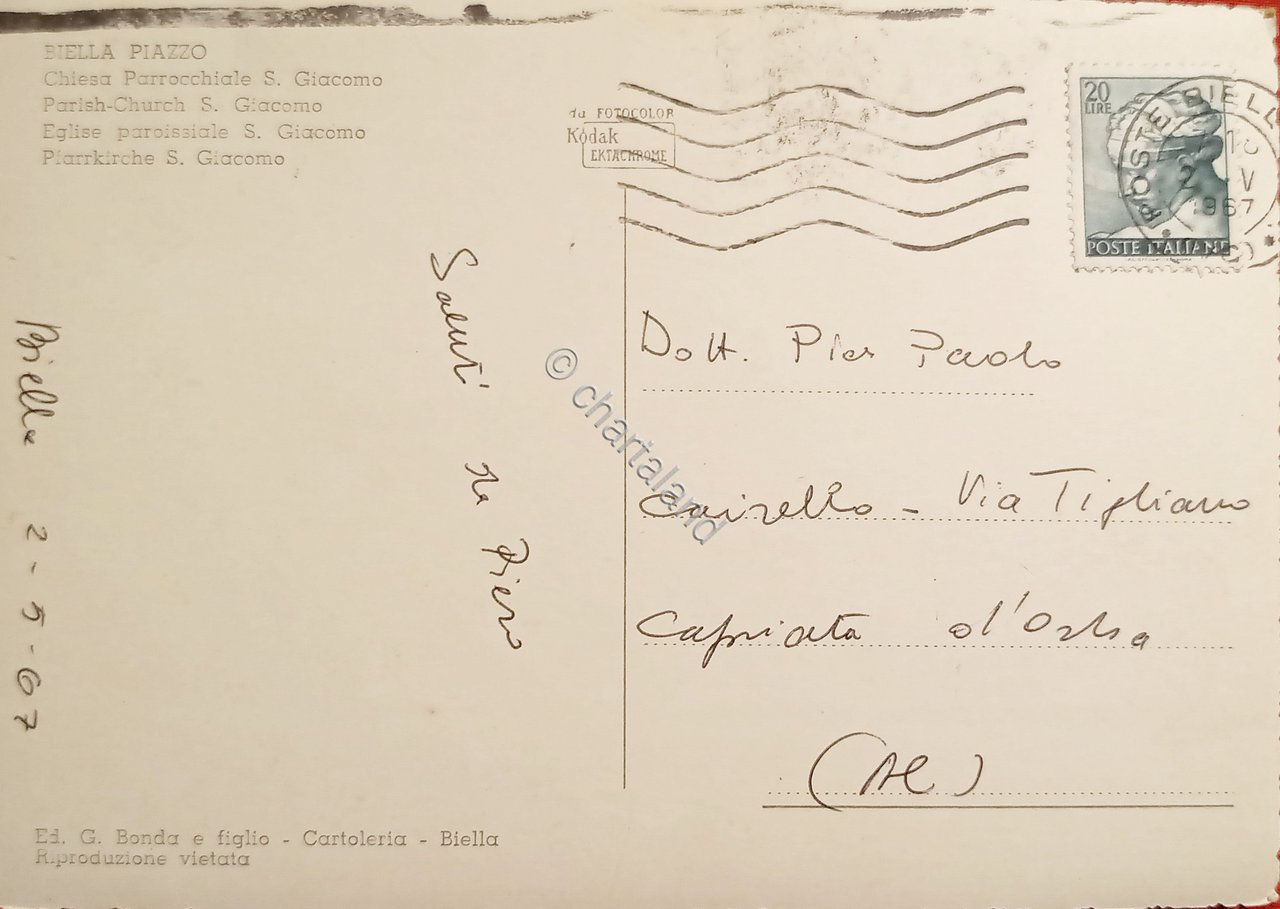 BIELLA PIAZZO
Chiesa Parrocchiale S. Giacomo
Parish-Church S. Giacomo
Eglise paroissiale S. Giacomo
Pfarrkirche S. Giacomo
da FOTOCOLOR
Kodak
EKTACHROME
20
LIRE
POSTE ITALIANE
POSTE BIELLA
1967
Biella 2-5-67
Saluti
da Piero
Dott. Pier Paolo
Via Tigliano
Capriata d'Orba
(AL)
© chartaland
Ed. G. Bonda e figlio - Cartoleria - Biella
Riproduzione vietata